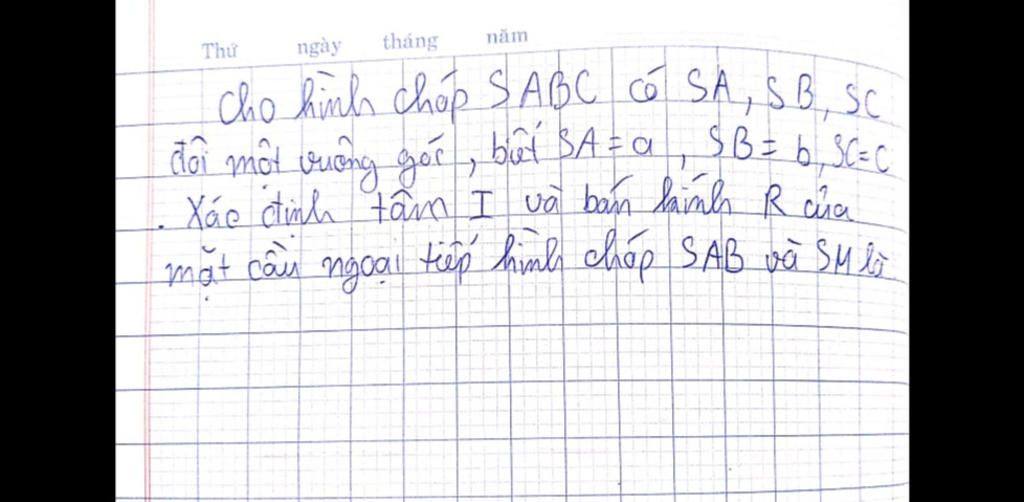 Thứ ngày tháng năm
Cho hình chóp SABC có SA, SB, SC
đôi một vuông góc, biết SA = a, SB = b, SC = c
. Xác định tâm I và bán kính R của
mặt cầu ngoại tiếp hình chóp SAB và SM là